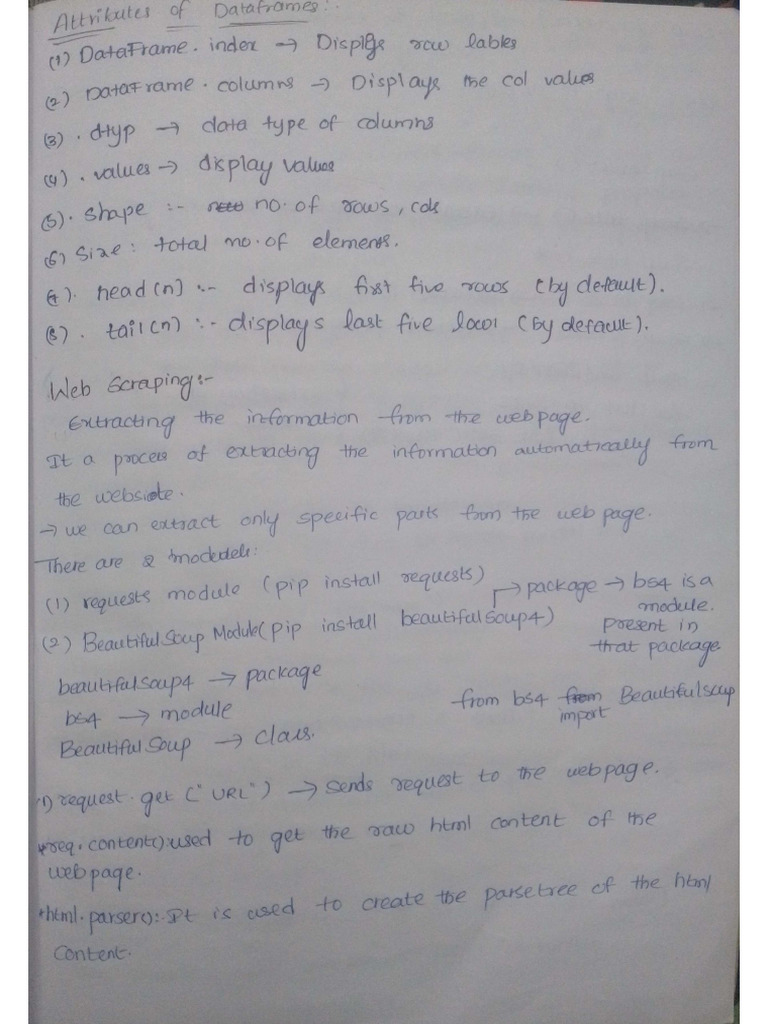 Attributes of Dataframes:-
(1) DataFrame.index → Displays row lables
(2) DataFrame.columns → Displays the col values
(3) .dtyp → data type of columns
(4) .values → display values
(5). shape :- no. of rows, cols
(6) Size: total no. of elements.
(7). head(n) :- displays first five rows (by default).
(8). tail(n) :- displays last five (by default).
Web Scraping:-
Extracting the information from the webpage.
It a process of extracting the information automatically from
the website.
→ we can extract only specific parts from the web page.
There are 2
(1) requests module (pip install requests)
→ package → bs4 is a
module.
present in
that package
(2) BeautifulSoup Module (pip install beautifulsoup4)
beautifulsoup4 → package
bs4 → module
BeautifulSoup → class.
from bs4 from BeautifulSoup
import
(1) request.get ("URL") → sends request to the webpage.
req.content(): used to get the raw html content of the
webpage.
html.parser(): It is used to create the parsetree of the html
content.